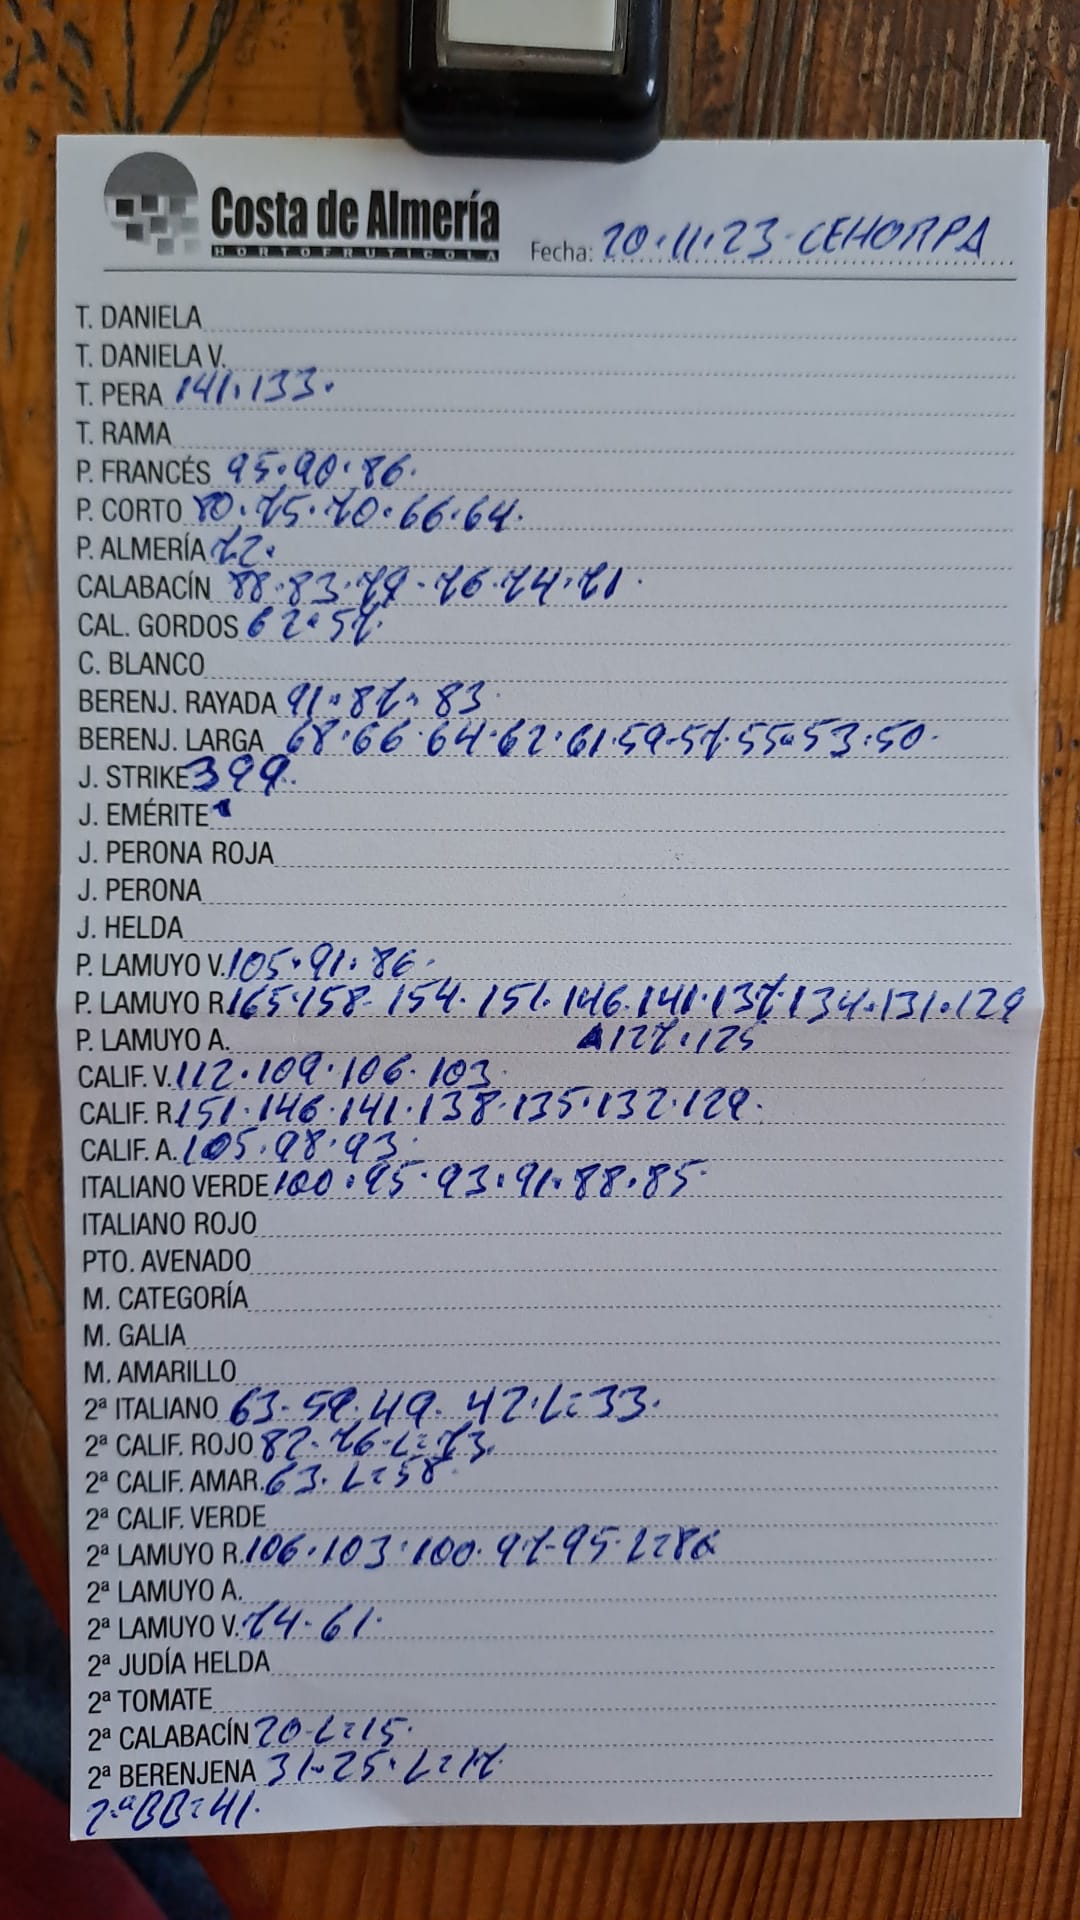 Costa de Almería
HORTOFRUTICOLA
Fecha: 20.11.23. CEHORPA
T. DANIELA
T. DANIELA V.
T. PERA 141.133.
T. RAMA
P. FRANCÉS 95.90.86.
P. CORTO 80.75.70.66.64.
P. ALMERÍA 72.
CALABACÍN 88.83.79-76.74.71.
CAL. GORDOS 62.57.
C. BLANCO
BERENJ. RAYADA 91.87.83.
BERENJ. LARGA 68.66.64.62.61.59.57.55.53.50.
J. STRIKE 399.
J. EMÉRITE
J. PERONA ROJA
J. PERONA
J. HELDA
P. LAMUYO V. 105.91.86.
P. LAMUYO R. 165.158-154.151.146.141.137.134.131.129
P. LAMUYO A. 127.125
CALIF. V. 112.109.106.103.
CALIF. R. 151.146.141.138.135.132.129.
CALIF. A. 105.98.93.
ITALIANO VERDE 100.95.93.91.88.85.
ITALIANO ROJO
PTO. AVENADO
M. CATEGORÍA
M. GALIA
M. AMARILLO
2ª ITALIANO 63-59.49.42.L=33.
2ª CALIF. ROJO 82-76-L=73.
2ª CALIF. AMAR. 63.L=58.
2ª CALIF. VERDE
2ª LAMUYO R. 106.103.100.97-95.L=86
2ª LAMUYO A.
2ª LAMUYO V. 74.61.
2ª JUDÍA HELDA
2ª TOMATE
2ª CALABACÍN 20-L=15.
2ª BERENJENA 31-25.L=17.
2ªBB=41.